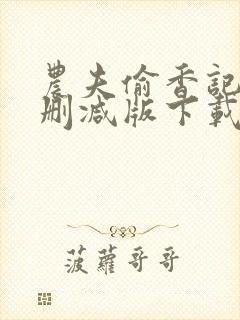 農夫偷香記
刪減版下載
菠蘿哥哥